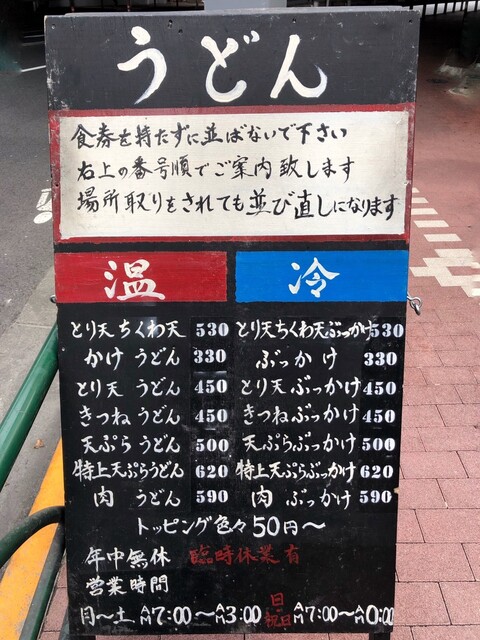 うどん
食券を持たずに並ばないで下さい
右上の番号順でご案内致します
場所取りをされても並び直しになります
温 冷
とり天ちくわ天 530 とり天ちくわ天ぶっかけ 530
かけうどん 330 ぶっかけ 330
とり天うどん 450 とり天ぶっかけ 450
きつねうどん 450 きつねぶっかけ 450
天ぷらうどん 500 天ぷらぶっかけ 500
特上天ぷらうどん 620 特上天ぷらぶっかけ 620
肉うどん 590 肉ぶっかけ 590
トッピング色々50円〜
年中無休 臨時休業有
営業時間
月〜土 AM7:00〜AM3:00 日祝日 AM7:00〜AM0:00